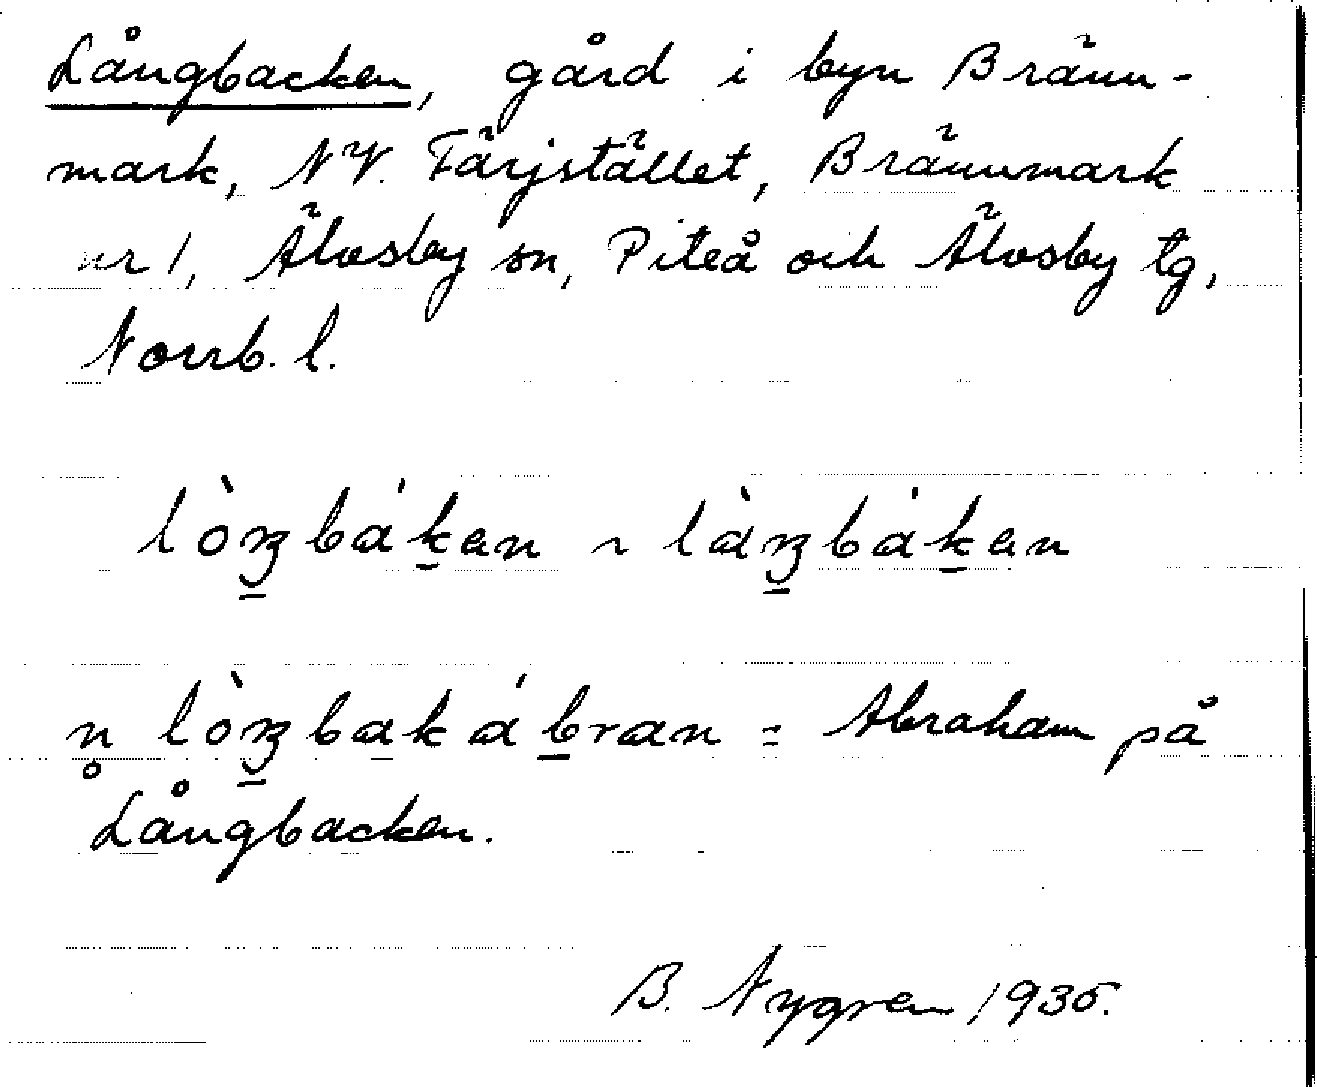 Långbacken, gård i byn Bränn-
mark, NV. Färjstället, Brännmark
nr 1, Älvsby sn, Piteå och Älvsby tg,
Norrb. l.
lòŋbáken ~ làŋbáken
n̥ lòŋbakábran = Abraham på
Långbacken.
B. Nygren 1935.